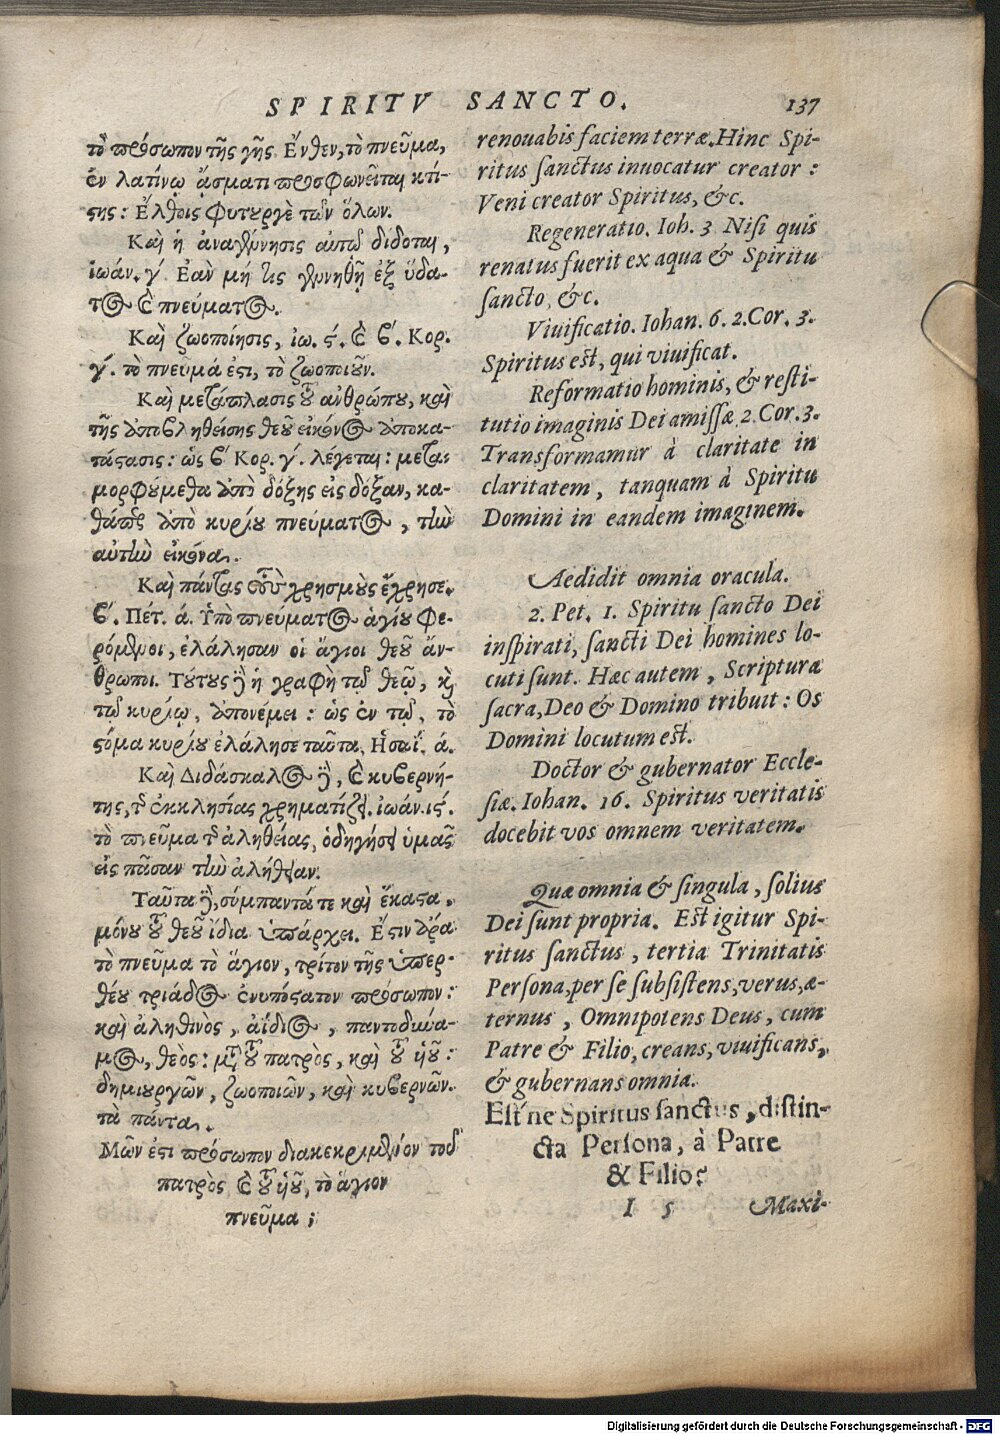 SPIRITV SANCTO. 137
τὸ πρόσωπον τῆς γῆς Ἔνθεν, τὸ πνεῦμα,
ἐν λατίνῳ ᾄσματι προσφωνεῖται κτί-
στης: Ἔλθοις φυτουργὲ τῶν ὅλων.
Καὶ ἡ ἀναγέννησις αὐτῷ δίδοται,
ἰωάν. γ΄. Ἐαν μή τις γεννηθῇ ἐξ ὕδα-
τος καὶ πνεύματος.
Καὶ ζωοποίησις, ἰω. ς΄. καὶ β΄. Κορ.
γ΄. τὸ πνεῦμά ἐστι, τὸ ζωοποιοῦν.
Καὶ μετάπλασις τοῦ ἀνθρώπου, καὶ
τῆς ἀποβληθείσης θεοῦ εἰκόνος ἀποκα-
τάστασις: ὡς β΄ Κορ. γ΄. λέγεται: μετα-
μορφούμεθα ἀπὸ δόξης εἰς δόξαν, κα-
θάπερ ἀπὸ κυρίου πνεύματος, τὴν
αὐτὴν εἰκόνα.
Καὶ πάντας τοὺς χρησμοὺς ἔχρησε.
β΄. Πέτ. ά. Ὑπὸ πνεύματος ἁγίου φε-
ρόμενοι, ἐλάλησαν οἱ ἅγιοι θεοῦ ἄν-
θρωποι. Τούτους δὲ ἡ γραφὴ τῷ θεῷ, καὶ
τῷ κυρίῳ, ἀπονέμει: ὡς ἐν τῷ, τὸ
στόμα κυρίου ἐλάλησε ταῦτα, Ησαΐ. ά.
Καὶ Διδάσκαλος δὲ, καὶ κυβερνή-
της, τῆς ἐκκλησίας χρηματίζει. ἰωάν. ις΄.
τὸ πνεῦμα τῆς ἀληθείας, ὁδηγήσει ὑμᾶς
εἰς πᾶσαν τὴν ἀλήθειαν.
Ταῦτα δὲ, σύμπαντά τε καὶ ἕκαστα,
μόνου τοῦ θεοῦ ἴδια ὑπάρχει. Εστιν ἄρα
τὸ πνεῦμα τὸ ἅγιον, τρίτον τῆς ὑπερ-
θέου τριάδος ἐνυπόστατον πρόσωπον:
καὶ ἀληθινὸς, ἀΐδιος, παντοδύνα-
μος, θεὸς: μετὰ τοῦ πατρὸς, καὶ τοῦ υἱοῦ:
δημιουργῶν, ζωοποιῶν, καὶ κυβερνῶν
τὰ πάντα.
Μῶν ἐστι πρόσωπον διακεκριμένον τοῦ
πατρὸς καὶ τοῦ υἱοῦ, τὸ ἅγιον
πνεῦμα;
renouabis faciem terræ. Hinc Spi-
ritus sanctus inuocatur creator:
Veni creator Spiritus, &c.
Regeneratio. Ioh. 3 Nisi quis
renatus fuerit ex aqua & Spiritu
sancto, &c.
Viuificatio. Iohan. 6. 2. Cor. 3.
Spiritus est, qui viuificat.
Reformatio hominis, & resti-
tutio imaginis Dei amissæ 2. Cor. 3.
Transformamur à claritate in
claritatem, tanquam à Spiritu
Domini in eandem imaginem.
Aedidit omnia oracula.
2. Pet. 1. Spiritu sancto Dei
inspirati, sancti Dei homines lo-
cuti sunt. Hæc autem, Scriptura
sacra, Deo & Domino tribuit: Os
Domini locutum est.
Doctor & gubernator Eccle-
siæ. Iohan. 16. Spiritus veritatis
docebit vos omnem veritatem.
Quæ omnia & singula, solius
Dei sunt propria. Est igitur Spi-
ritus sanctus, tertia Trinitatis
Persona, per se subsistens, verus, æ-
ternus, Omnipotens Deus, cum
Patre & Filio, creans, viuificans,
& gubernans omnia.
Estne Spiritus sanctus, distin-
cta Persona, à Patre
& Filio?
I 5 Maxi-
Digitalisierung gefördert durch die Deutsche Forschungsgemeinschaft - DFG